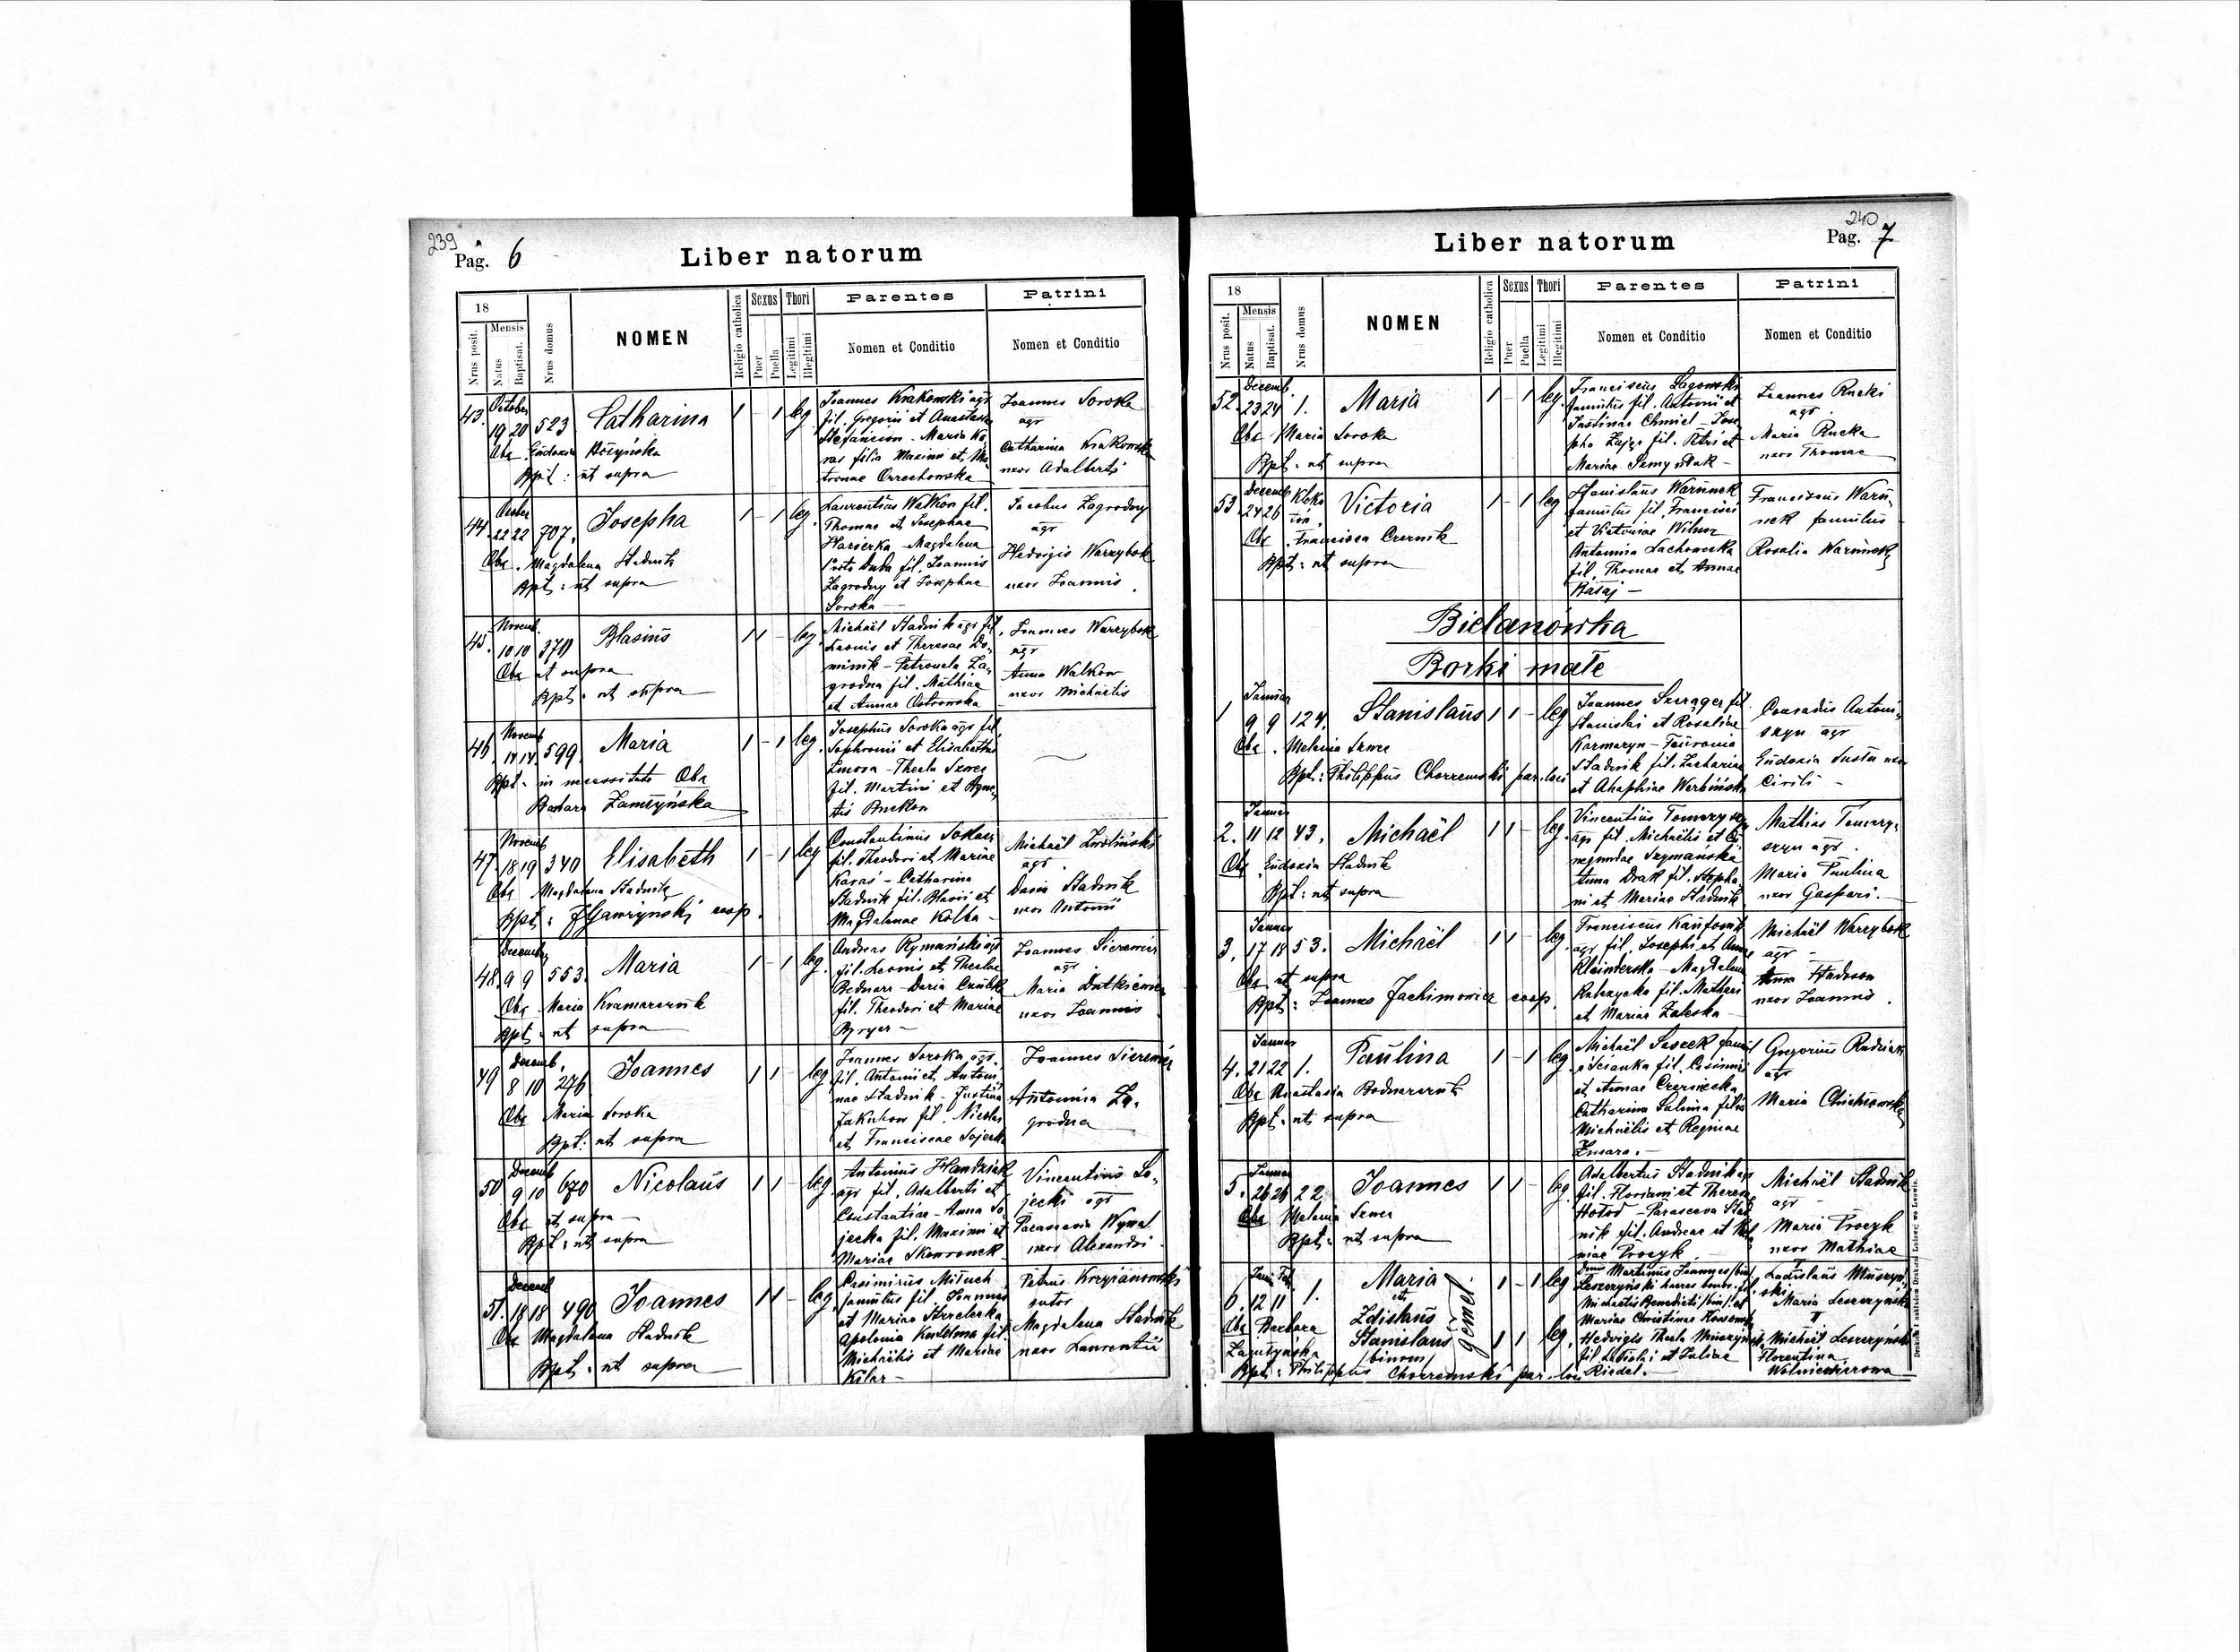 239
Pag. 6
Liber natorum
18
Nrus posit.
Mensis
Natus
Baptisat.
Nrus domus
NOMEN
Religio catholica
Sexus
Puer
Puella
Thori
Legitimi
Illegitimi
Parentes
Nomen et Conditio
Patrini
Nomen et Conditio
43. October 19 20 523 Catharina 1 - 1 leg
Obs. Eudoxia
Bpt: ut supra
Joannes Krakowski agr
fil. Gregorii et Anastasiae
Stefancion - Maria Ka
ras filia Maximi et Ma
tronae Orzechowska
Joannes Soroka
agr
Catharina Krakowska
uxor Adalberti
44. October 22 22 707. Josepha 1 - 1 leg.
Obs. Magdalena Stadnik
Bpt: ut supra
Laurentius Walkow fil.
Thomae et Josephae
Harierka - Magdalena
Duda fil. Joannis
Zagrodny et Josephae
Soroka
Jacobus Zagrodny
agr
Hedvigis Warzybok
uxor Joannis.
45. Novemb. 10 10 370 Blasius 1 1 - leg.
Obs ut supra
Bpt: ut supra
Michaël Stadnik agr fil.
Leonis et Theresae Do
minik - Petronela Za
grodna fil. Mathiae
et Annae Ostrowska
Joannes Warzybok
agr
Anna Walkow
uxor Michaelis
46. Novemb 14 14 599. Maria 1 - 1 leg.
Bpt. in necessitate Obs
Barbara Zamszyńska
Josephus Soroka agr fil.
Sophronii et Elisabethae
Thecla Szwec
fil. Martini et Agne
tis
47. Novemb 18 19 340 Elisabeth 1 - 1 leg
Obs Magdalena Stadnik
Bpt: coop.
Constantinus Sokacz
fil. Theodori et Mariae
Karaś - Catharina
Stadnik fil. Blasii et
Magdalenae Kolba -
Michaël
agr.
Daria Stadnik
uxor Antonii
48. Decemb 9 9 553. Maria 1 - 1 leg.
Obs Maria Kramarczuk
Bpt: ut supra
Andreas Rymański agr
fil. Leonis et Theclae
Bednarz - Daria
fil. Theodori et Mariae
Joannes
agr.
Maria Dutkiewicz
uxor Joannis
49 Decemb. 8 10 276 Joannes 1 1 - leg
Obs Maria Soroka
Bpt: ut supra
Joannes Soroka agr.
fil. Antonii et Antoni
nae Stadnik - Justina
Jakubow fil. Nicolai
et Franciscae Sojecka
Joannes
Antonina Za
grodna
50 Decemb 9 10 670 Nicolaus 1 1 - leg
Obs ut supra
Bpt: ut supra
Antonius Handziak
agr fil. Adalberti et
Constantiae - Anna So
jecka fil. Maximi et
Mariae Skowronek
Vincentius So
jecki agr
uxor Alexandri
51. Decemb 18 18 490 Joannes 1 1 - leg.
Obs Magdalena Stadnik
Bpt: ut supra
Casimirus Mituch
famulus fil. Joannes
et Mariae Strzelecka
Apolonia fil.
Michaëlis et Mariae
Kilar -
Petrus
sutor
Magdalena Stadnik
uxor Laurentii
240
Pag. 7
Liber natorum
18
Nrus posit.
Mensis
Natus
Baptisat.
Nrus domus
NOMEN
Religio catholica
Sexus
Puer
Puella
Thori
Legitimi
Illegitimi
Parentes
Nomen et Conditio
Patrini
Nomen et Conditio
52. Decemb. 23 24 1. Maria 1 - 1 leg.
Obs Maria Soroka
Bpt: ut supra
Franciscus Łagowski
famulus fil. Antonii et
Justinae Chmiel - Jose
pha Zając fil. Petri et
Mariae
Joannes Rucki
agr.
Maria Rucka
uxor Thomae
53 Decemb 24 26 Victoria 1 - 1 leg
Obs. Francisca Czernik
Bpt: ut supra
Stanislaus Warunek
famulus fil. Francisci
et Victoriae
Antonina Lachowecka
fil. Thomae et Annae
Rataj -
Franciscus Waru
nek famulus
Rosalia Warunek
Bielanówka
Borki małe
1 Januar 9 9 124. Stanislaus 1 1 - leg
Obs. Melania Szwec
Bpt: Philippus Chorzemski par. loci
Joannes Szeragen fil.
Stanislai et Rosaliae
Karmazyn - Feuronia
Stadnik fil. Zachariae
et Ahaphiae Werbińska
Conradus Antoni
szyn agr
Eudoxia uxor
Cirili -
2. Januar 11 12 43. Michaël 1 1 - leg.
Obs Eudoxia Stadnik
Bpt: ut supra
Vincentius
agr fil. Michaëlis et Cu
negundae Szymańska
Anna Drak fil. Stepha
ni et Mariae Stadnik
Mathias
agr.
Maria Paulina
uxor Gaspari. -
3. Januar 17 18 53. Michaël 1 1 - leg.
Obs ut supra
Bpt: Joannes Jachimowicz coop.
Franciscus
agr fil. Josephi et Annae
Magdalena
fil. Mathaei
et Mariae Zaleska -
Michaël Warzybok
agr -
Anna
uxor Joannis.
4. Januar 21 22 1. Paulina 1 - 1 leg
Obs Anastasia Bodnarczuk
Bpt: ut supra
Michaël famul
fil. Casimiri
et Annae Czerniecka
Catharina Salwina filia
Michaëlis et Reginae
Gregorius Rudziak
agr
Maria
5. Januar 26 26 22 Joannes 1 1 - leg.
Obs Melania Szwec
Bpt: ut supra
Adalbertus Stadnik agr
fil. Floriani et Theresae
Hołod - Parasceva Stad
nik fil. Andreae et
Procyk
Michaël Stadnik
agr -
Maria Procyk
uxor Mathiae
6. Janu Feb 12 11 1. Maria 1 - 1 leg
et
Zdislaus
Stanislaus 1 1 leg.
/binom/
gemel.
Obs Barbara
Zamszyńska
Bpt: Philippus Chorzemski par. loci
Dnus Martinus Joannes /bin/
Leszczyński haeres bonor. fil.
Michaelis Benedicti /bin/ et
Mariae Christinae
Hedvigis Thecla Muszyńska
fil Ladislai et Juliae
Riedel. -
I
Ladislaus Muszyń
ski
Maria Leszczyńska
II
Michaël Leszczyński
Florentina
Wolniewiczowa
Druk i nakładem Drukarni Ludowej we Lwowie.